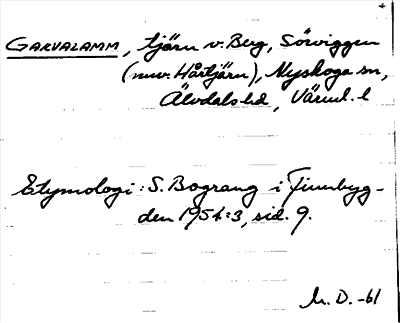 GARVALAMM, tjärn v. Berg, Sörviggen
(nuv. Hårtjärn), Nyskoga sn,
Älvdals hd, Värml. l
Etymologi: S. Bograng i Finnbyg-
den 1954:3, sid. 9.
M. D. -61